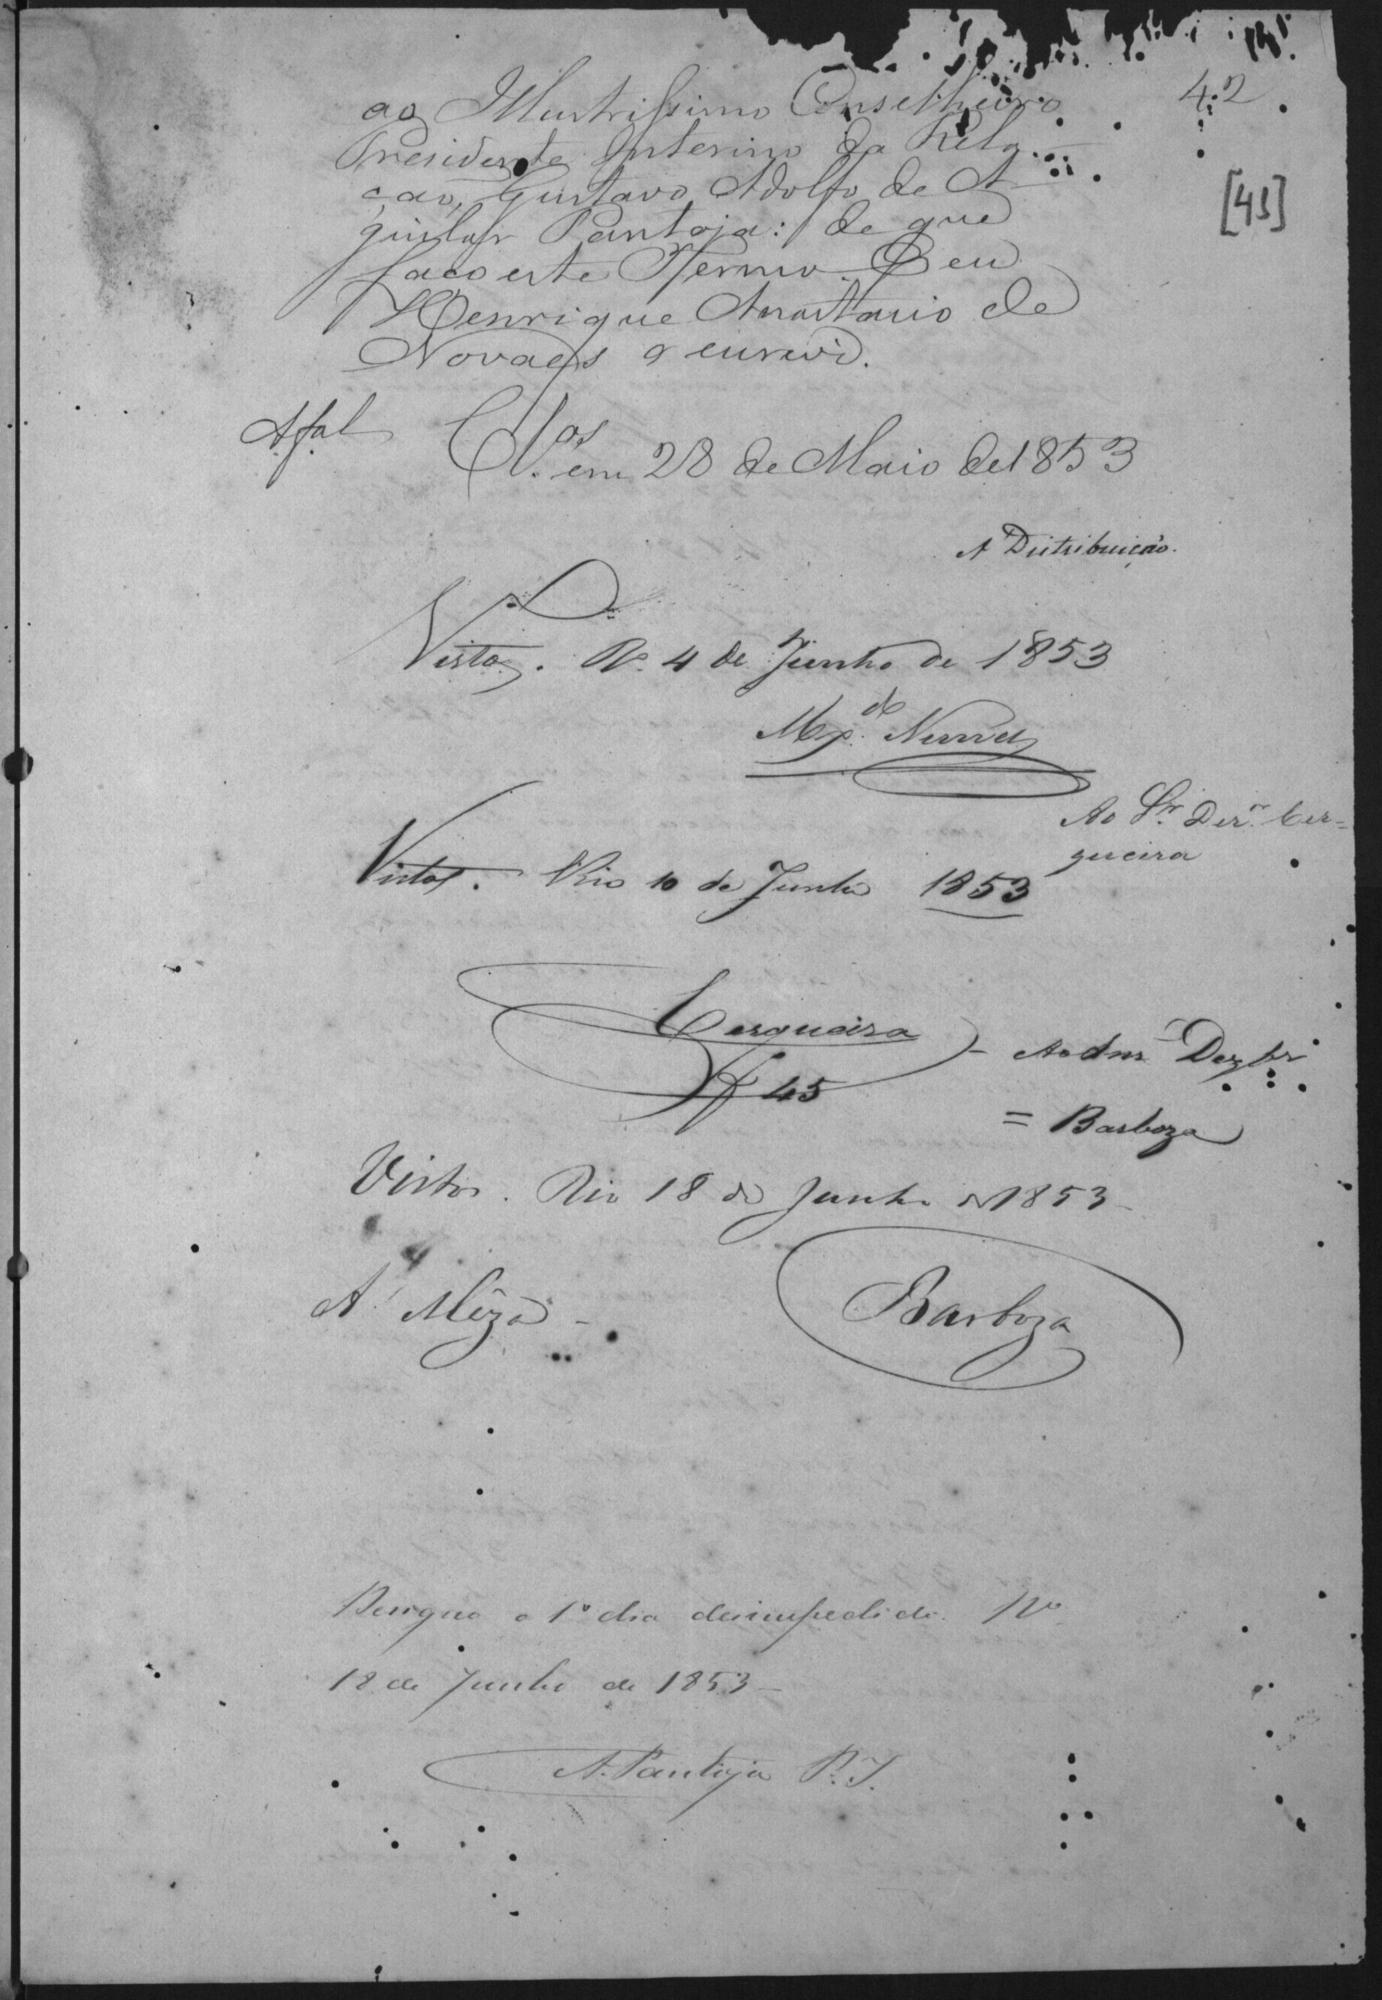 42
[43]
ao Illustrissimo Conselheiro
Presidente Interino da Rela
ção, Gustavo Adolfo de A
guilar Pantoja: de que
faço este Termo. E eu
Henrique Anastacio de
Novaes o escrevi.
Cl.os em 28 de Maio de 1853
A Distribuição.
Vistos. Rº 4 de Junho de 1853
Ao Sr. Dezr. Cer=
queira
Vistos. Rio 10 de Junho 1853
Cerqueira
45
Ao Snr Dezbr
= Barboza
Vistos. Rio 18 de Junho de 1853
A' Mêza -
Barboza
Designo o 1º dia desimpedido. Rº
18 de Junho de 1853 -
A. Pantoja P. I.